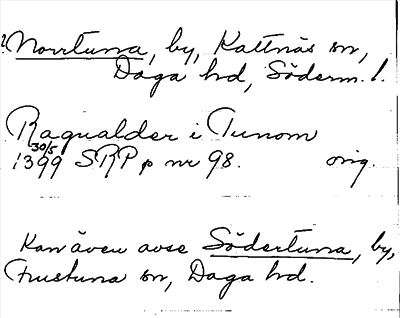 ? Norrtuna, by, Kattnäs sn,
Daga hd, Söderm. l.
Ragualder i Tunom
30/5
1399 SRP p nr 98. orig.
Kan även avse Södertuna, by,
Frustuna sn, Daga hd.